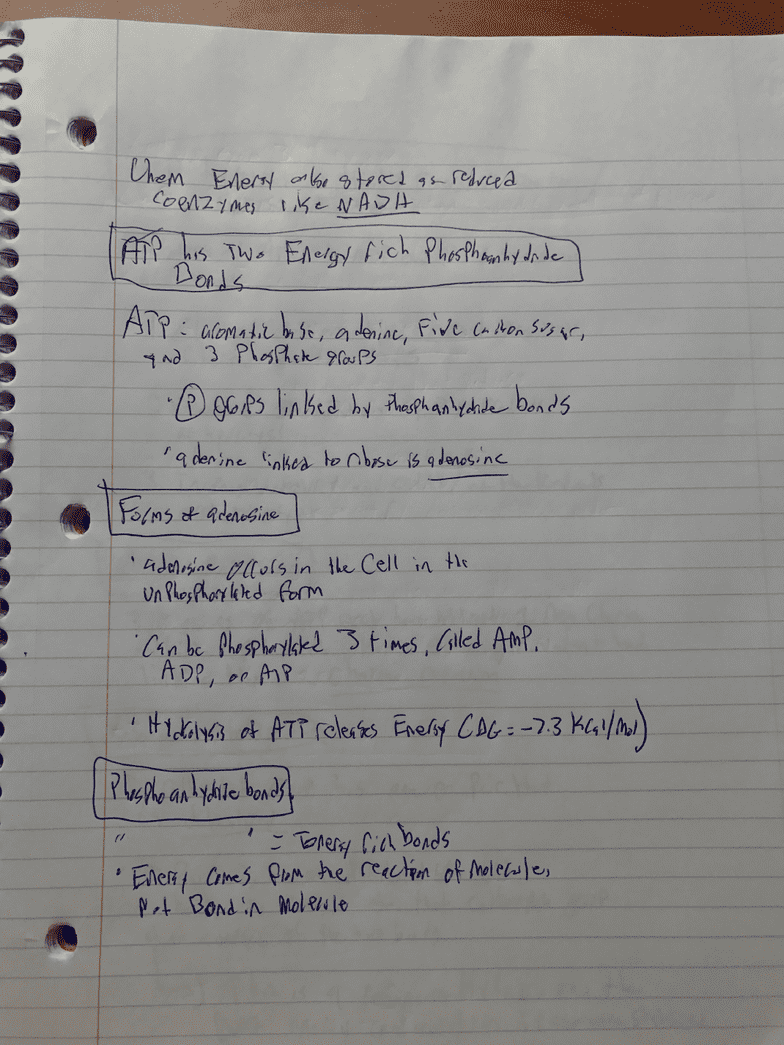 Chem Energy also stored as reduced
coenzymes like NADH
ATP has Two Energy rich Phosphoanhydride
Bonds
ATP: aromatic base, adenine, Five carbon sugar,
and 3 Phosphate groups
· Ⓟ groups linked by Phosphanhydride bonds
· adenine linked to ribose is adenosine
Forms of adenosine
· adenosine occurs in the Cell in the
unPhosphorylated form
· Can be Phosphorylated 3 times, Called AMP,
ADP, or ATP
· Hydrolysis of ATP releases Energy (ΔG = -7.3 Kcal/mol)
Phosphoanhydride bonds
" " = Energy rich bonds
· Energy comes from the reaction of molecule,
not Bond in molecule